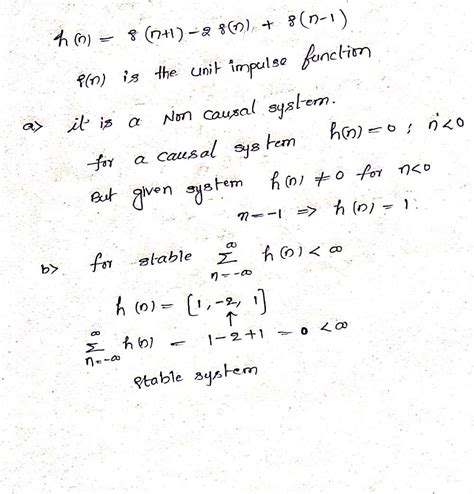 h(n) = δ(n+1) - 2 δ(n) + δ(n-1)
δ(n) is the unit impulse function
a> it is a Non causal system.
for a causal system h(n) = 0 ; n<0
But given system h(n) ≠ 0 for n<0
n=-1 => h(n) = 1
b> for stable ∑_{n=-∞}^{∞} h(n) < ∞
h(n) = [1, -2, 1]
↑
∑_{n=-∞}^{∞} h(n) = 1-2+1 = 0 < ∞
stable system